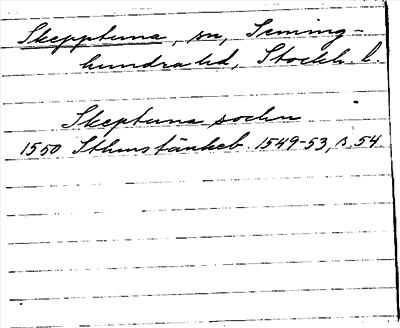 Skepptuna, sn, Seming-
hundra hd, Stockh. l.
Skeptuna sockn
1550 Sthmstänkeb. 1549-53, s. 54.